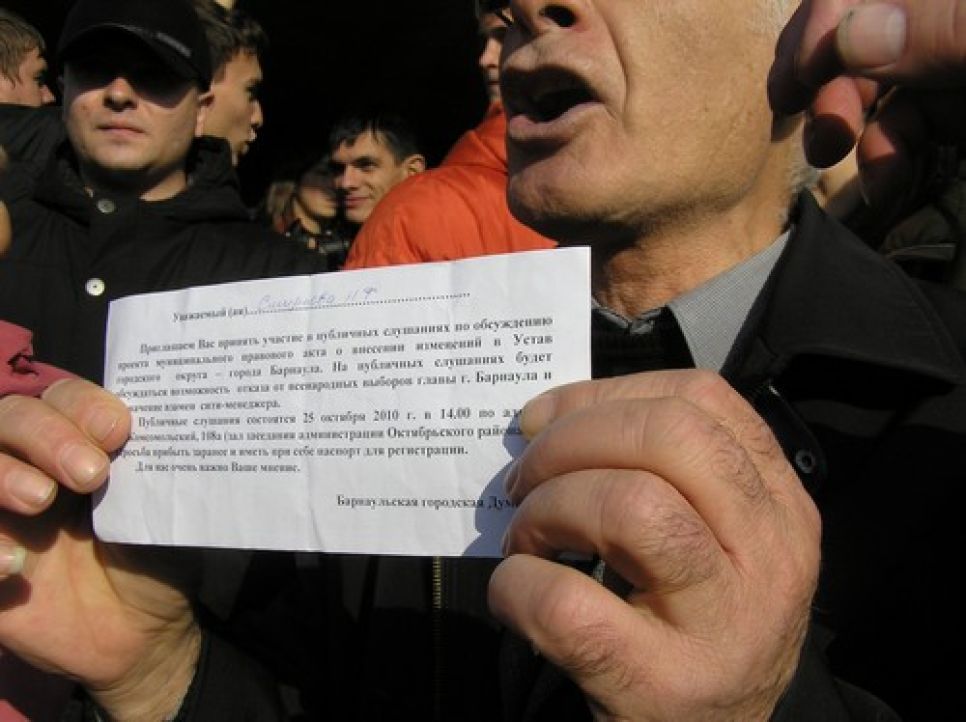 Уважаемый (ая)
Приглашаем Вас принять участие в публичных слушаниях по обсуждению
проекта муниципального правового акта о внесении изменений в Устав
городского округа – города Барнаула. На публичных слушаниях будет
обсуждаться возможность отказа от всенародных выборов главы г. Барнаула и
взамен сити-менеджера.
Публичные слушания состоятся 25 октября 2010 г. в 14.00 по
Комсомольский, 108а (зал заседания администрации Октябрьского района
просьба прибыть заранее и иметь при себе паспорт для регистрации.
Для нас очень важно Ваше мнение.
Барнаульская городская Дума